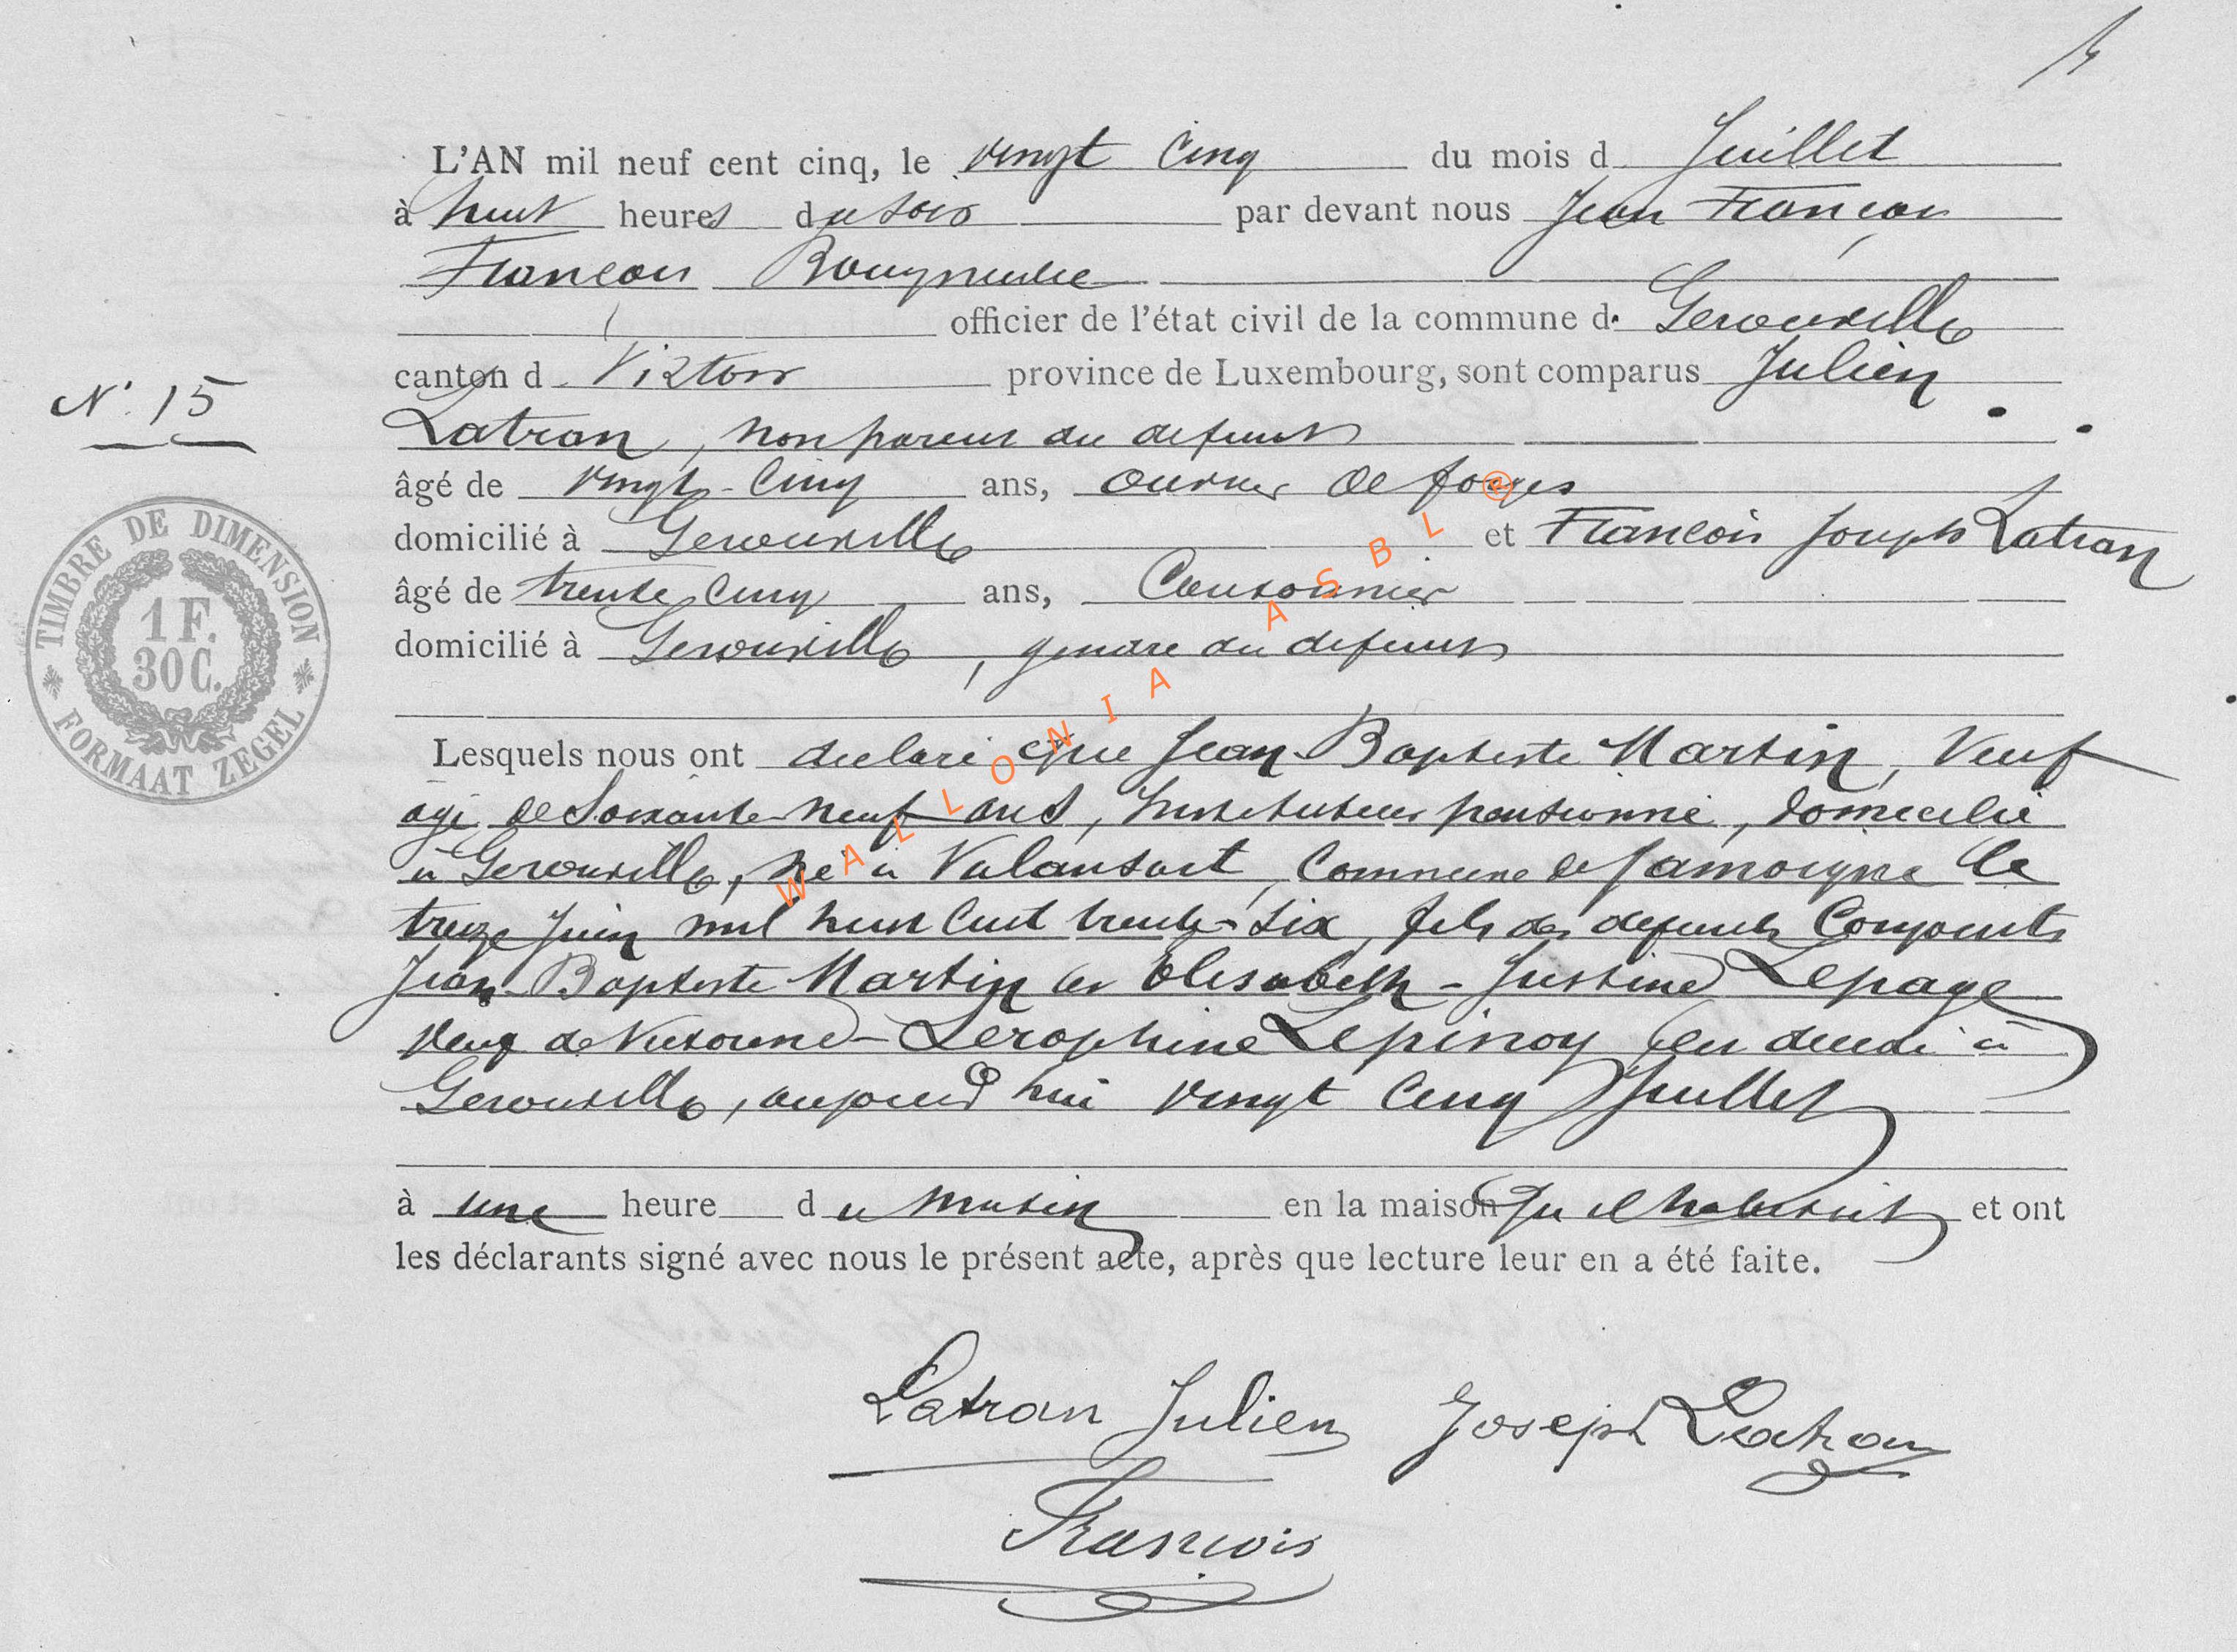 L'AN mil neuf cent cinq, le vingt cinq du mois d Juillet
à huit heures du soir par devant nous Jean François
François Bourgmestre
officier de l'état civil de la commune d. Gerouville
canton d Virton province de Luxembourg, sont comparus Julien
N° 15
Latran, non parent du defunt
âgé de vingt-cinq ans, ouvrier de forges
domicilié à Gerouville et François Joseph Latran
âgé de trente cinq ans,
domicilié à Gerouville, gendre du defunt
TIMBRE DE DIMENSION
1 F.
30 C.
FORMAAT ZEGEL
Lesquels nous ont declaré que Jean-Baptiste Martin, Veuf
agé de Soixante-neuf ans, Instituteur pensionné, domicilié
à Gerouville, né à Valansart, Commune de Jamoigne le
treize Juin mil huit Cent trente-six, fils des defunts Conjoints
Jean-Baptiste Martin et Elisabeth-Justine Lepage
Veuf de Victorine-Seraphine Lepinoy est decedé à
Gerouville, aujourd'hui vingt cinq Juillet
à une heure du matin en la maison qu'il habitait et ont
les déclarants signé avec nous le présent acte, après que lecture leur en a été faite.
Latran Julien Joseph Latran
François
WALLONIA ASBL ©